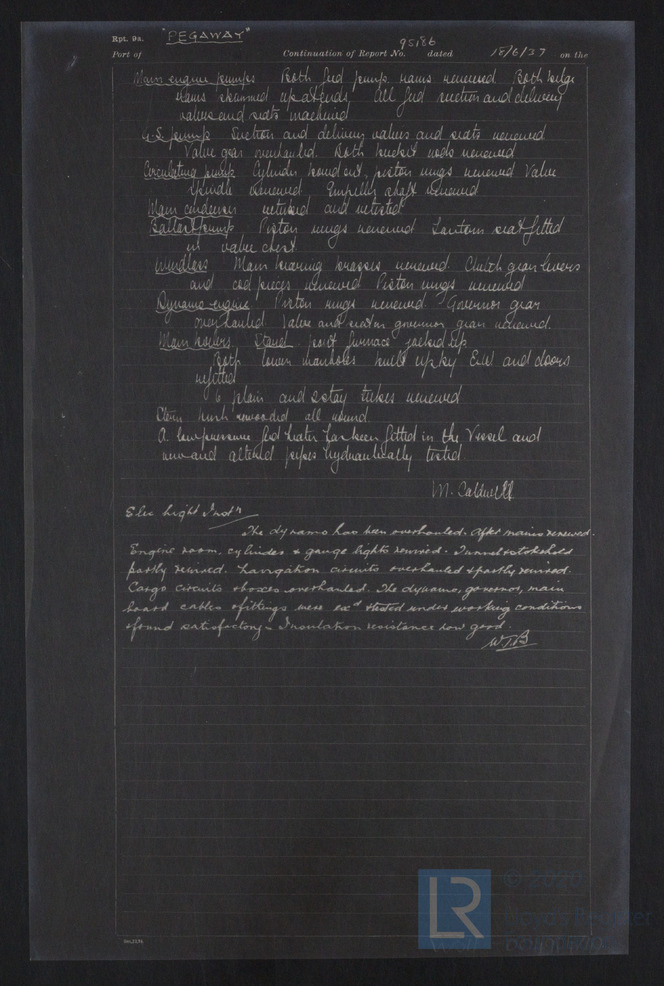 Rpt. 9a. "PEGAWAY"
Port of Continuation of Report No. 95186 dated 18/6/37 on the
Main engine pumps Both feed pump rams renewed Both bilge
rams skimmed up at ends, All feed suction and delivery
valves and seats machined
G.S. pump Suction and delivery valves and seats renewed
Valve gear overhauled. Both bucket rods renewed
Circulating pump Cylinder bored out, piston rings renewed Valve
spindle renewed. Impeller shaft renewed
Main condenser retubed and retested
Ballast pump Piston rings renewed Lantern seat fitted
in valve chest
Windlass Main bearing brasses renewed. Clutch gear levers
and cod pieces renewed Piston rings renewed
Dynamo engine. Piston rings renewed Governor gear
overhauled Valve and seat in governor gear renewed.
Main boilers Starbd port furnace jacked up
Both lower manholes built up by E.W. and doors
refitted
6 plain and stay tubes renewed
Stern bush rewooded all round.
A low pressure feed heater has been fitted in the Vessel and
new and altered pipes hydraulically tested.
M. Caldwell
Elec Light Instn
The dynamo has been overhauled. After mains renewed.
Engine room, cylinder & gauge lights rewired. Tunnel & stokehold
partly rewired. Navigation circuits overhauled & partly rewired.
Cargo circuits & boxes overhauled. The dynamo, governor, main
board cables & fittings were exd & tested under working conditions
& found satisfactory - Insulation resistance now good.
W.T.B
© 2020
Lloyd's Register
LR